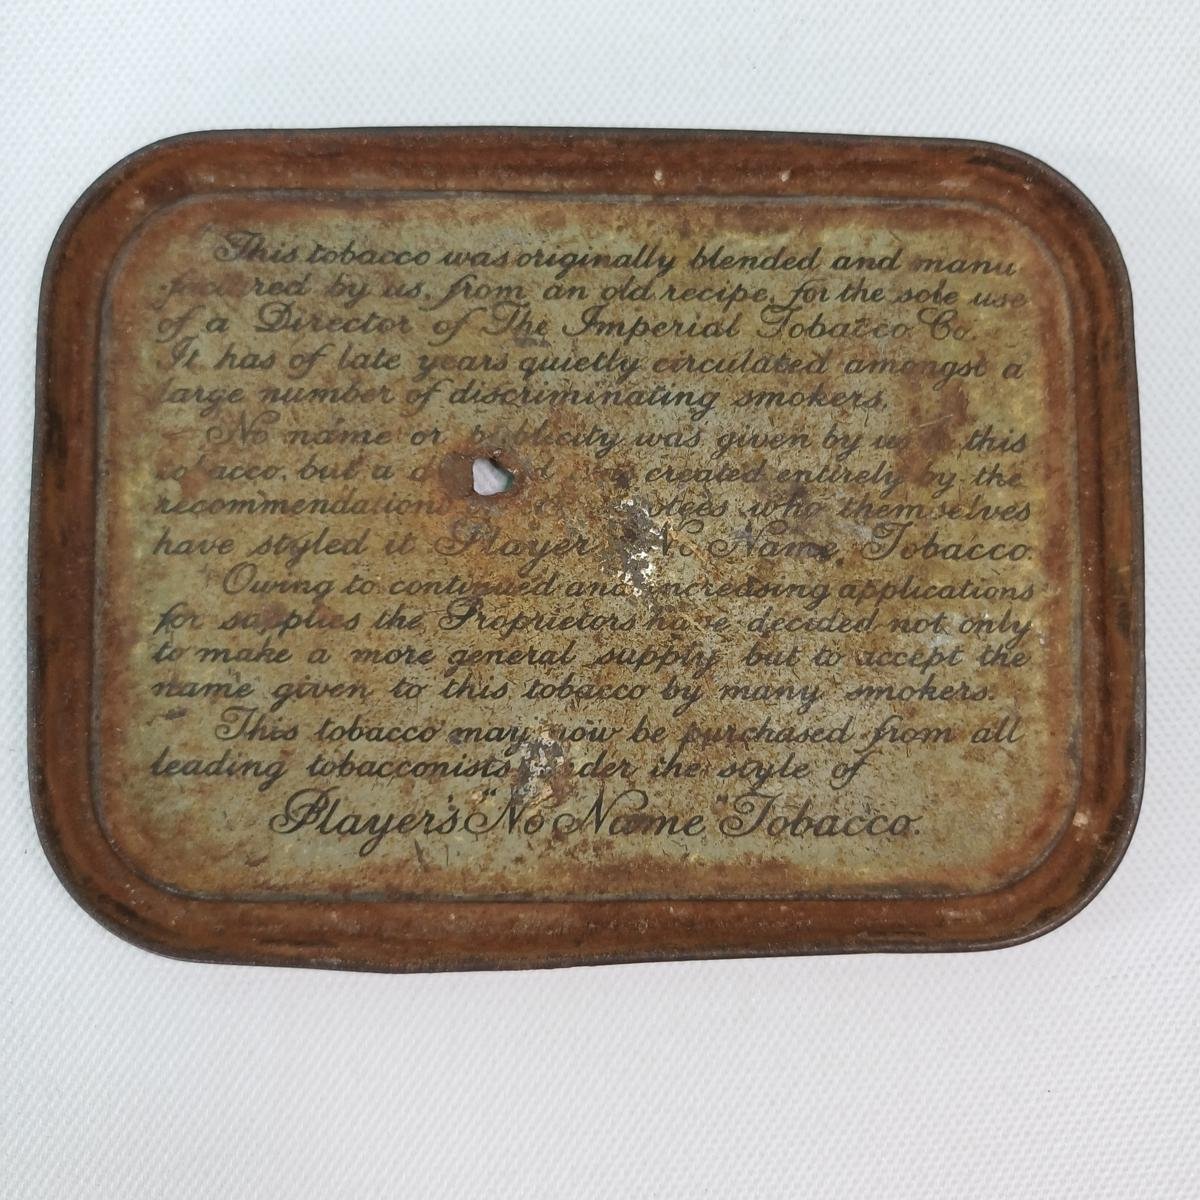 This tobacco was originally blended and manu-
factured by us, from an old recipe, for the sole use
of a Director of The Imperial Tobacco Co.
It has of late years quietly circulated amongst a
large number of discriminating smokers.
No name or publicity was given by us to this
tobacco, but a created entirely by the
recommendations who themselves
have styled it Player's No Name Tobacco
Owing to continued and increasing applications
for supplies the Proprietors have decided not only
to make a more general supply but to accept the
name given to this tobacco by many smokers.
This tobacco may now be purchased from all
leading tobacconists under the style of
Player's "No Name" Tobacco.